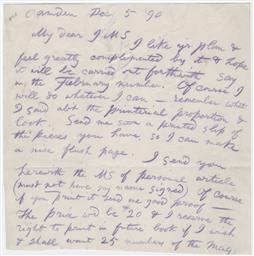 Camden Dec 5 '90
My dear J M S
I like yr plan &
feel greatly complimented by it, & hope
it will be carried out forthwith say
in the February number. Of course I
will do whatever I can — remember what
I said abt the printerial proportion &
look. Send me soon a printed slip of
the pieces you have, so I can make
a nice flush page.
I send you
herewith the MS of personal article
(must not have my name signed) Of course
if you print it send me good proof —
The price wd be $20 & I reserve the
right to print in future book if I wish
& shall want 25 numbers of the Mag.